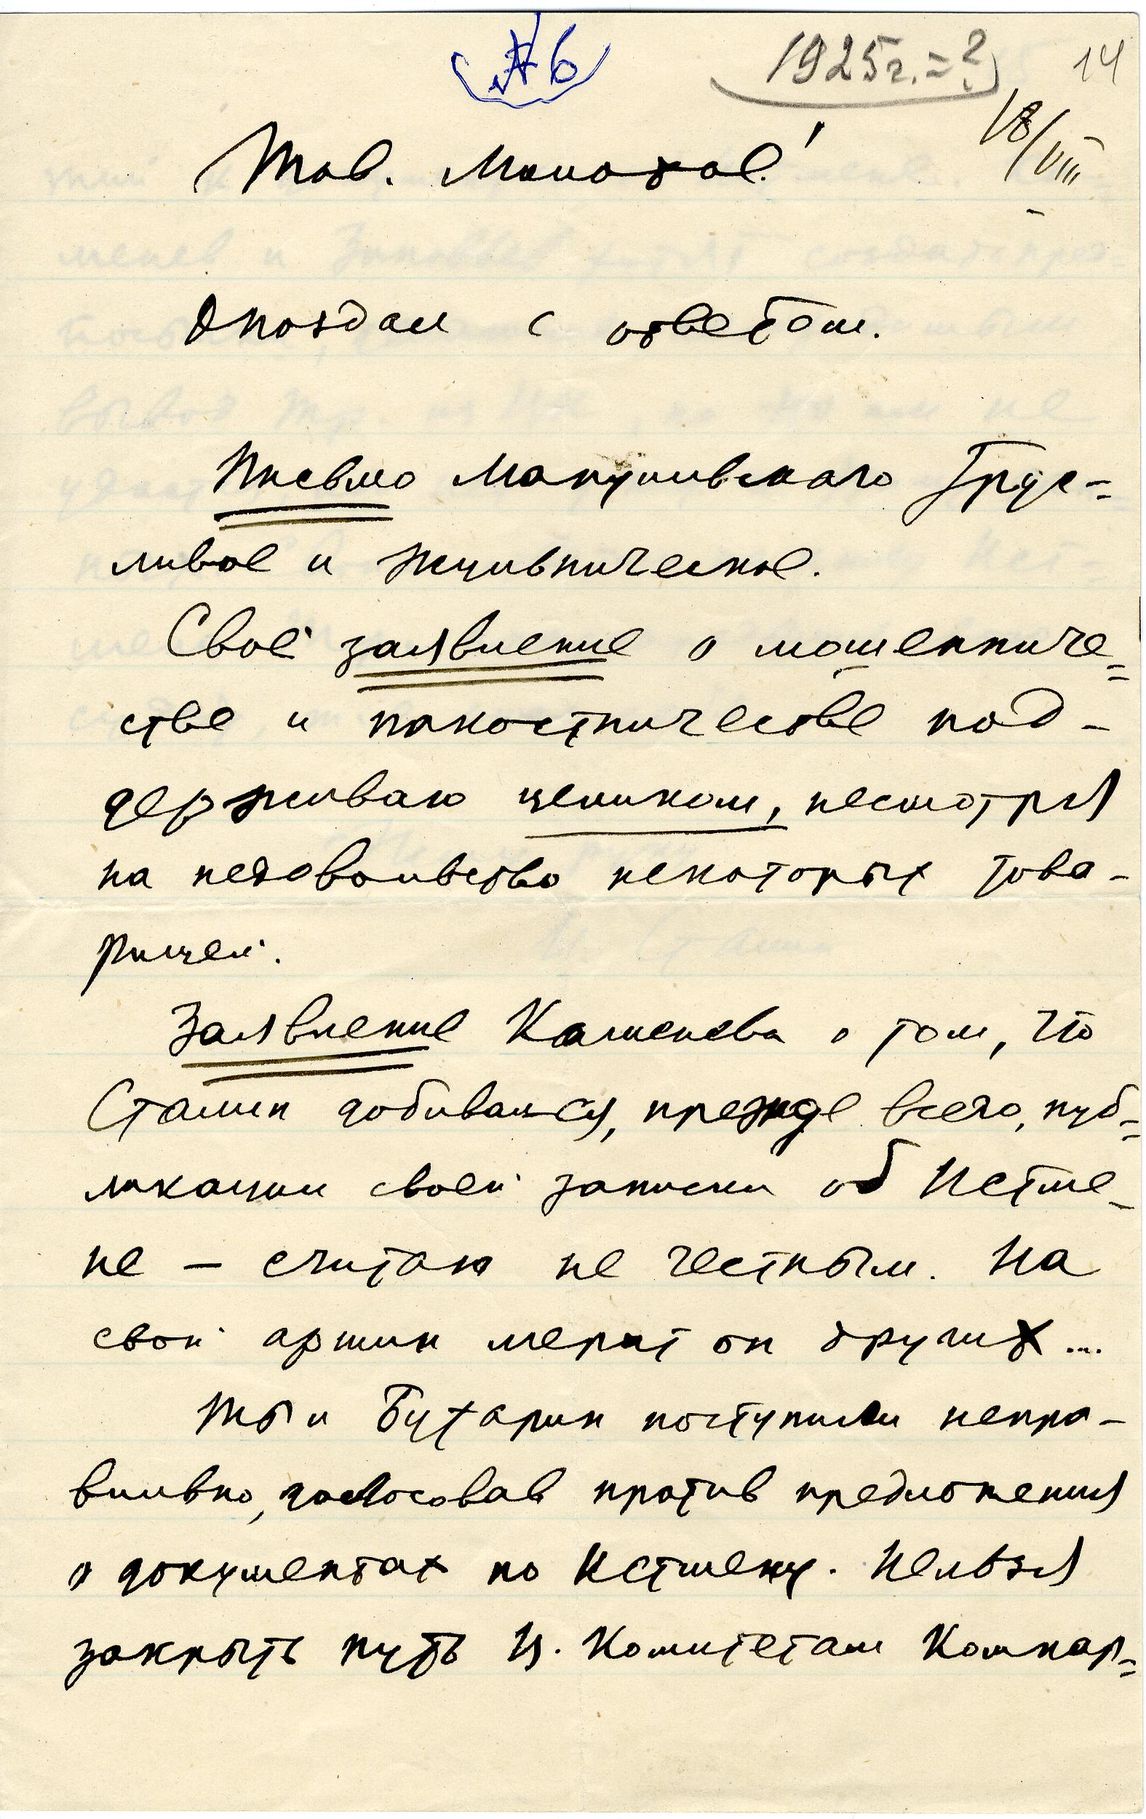 № 6
1925 г. = ?
14
18/VIII
Тов. Молотов!
Опоздал с ответом.
Письмо Макушивскаго трус-
ливое и жульническое.
Своё заявление о мошенниче-
стве и пакостничестве под-
держиваю целиком, несмотря
на недовольство некоторых това-
рищей.
Заявление Каменева о том, что
Сталин добивался, прежде всего, пуб-
ликации своей записки об Истме-
не – считаю не честным. На
свой аршин мерит он других...
Ты и Бухарин поступили непра-
вильно, голосовав против предложения
о документах по Истмену. Нельзя
закрыть путь Ц. Комитетам Компар-